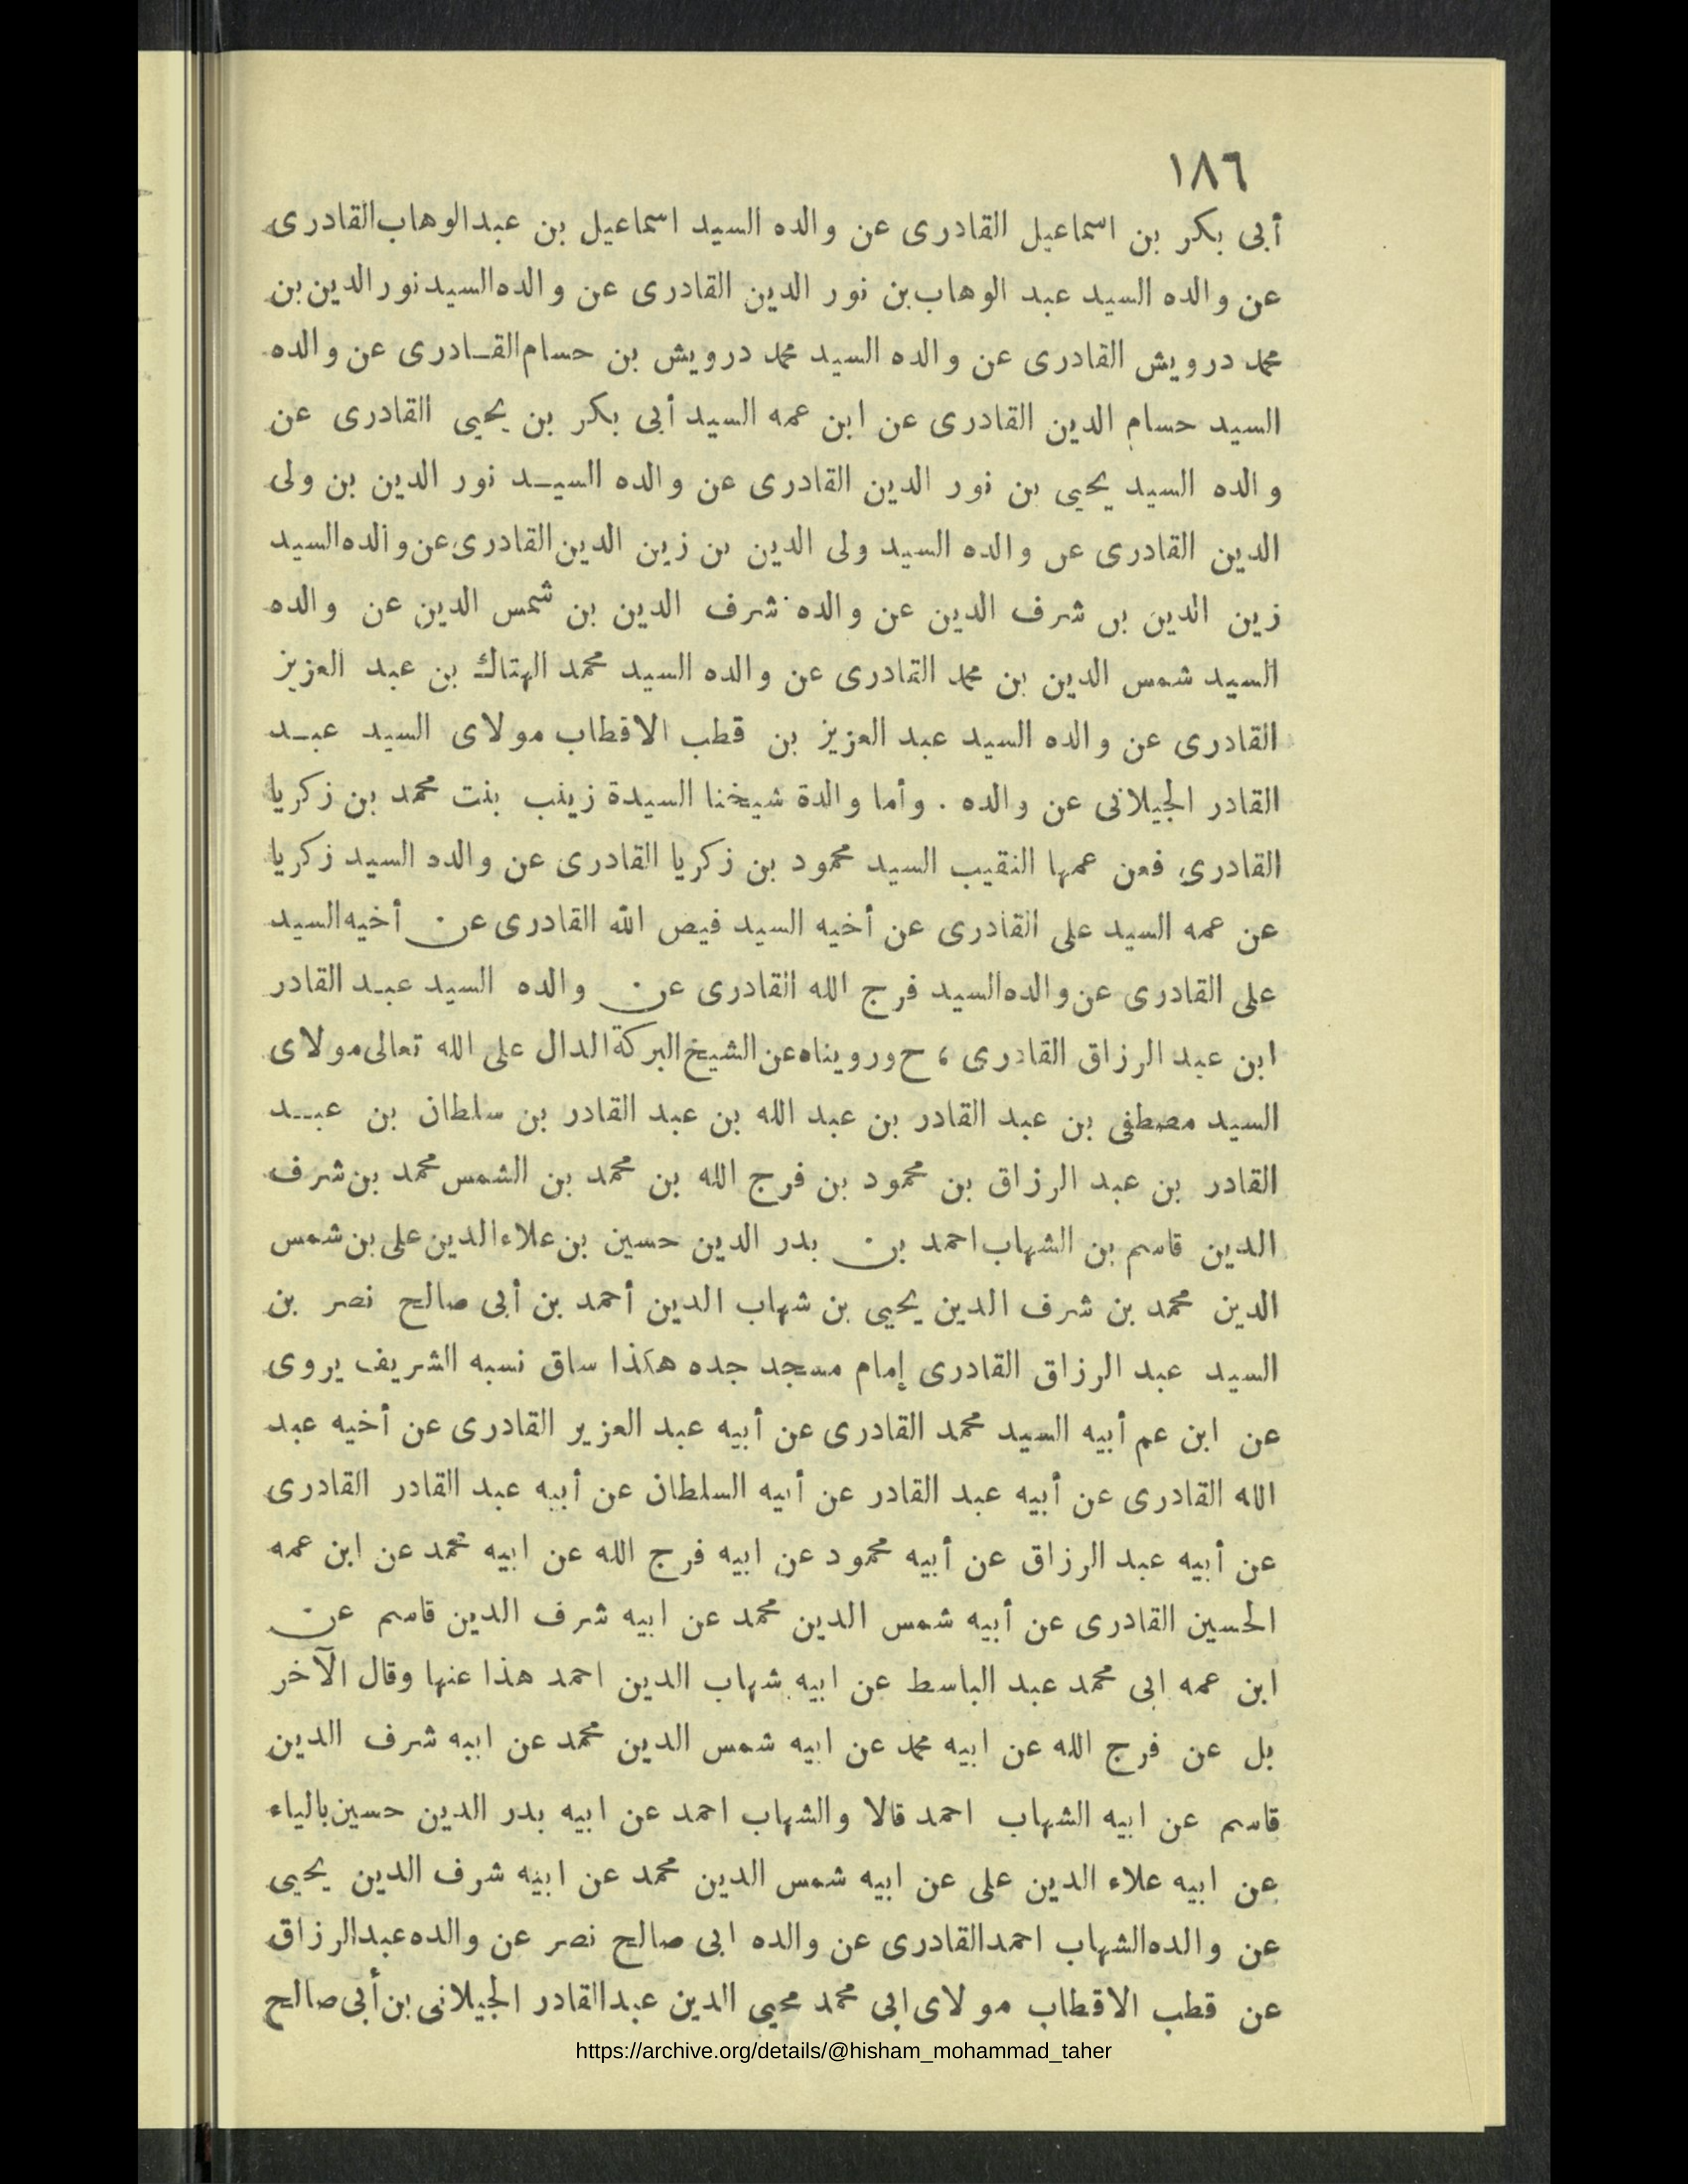 ١٨٦
أبى بكر بن اسماعيل القادرى عن والده السيد اسماعيل بن عبدالوهاب القادرى
عن والده السيد عبد الوهاب بن نور الدين القادرى عن والده السيد نور الدين بن
محمد درويش القادرى عن والده السيد محمد درويش بن حسام القـادرى عن والده
السيد حسام الدين القادرى عن ابن عمه السيد أبى بكر بن يحيى القادرى عن
والده السيد يحيى بن نور الدين القادرى عن والده السيـد نور الدين بن ولى
الدين القادرى عن والده السيد ولى الدين بن زين الدين القادرى عن والده السيد
زين الدين بن شرف الدين عن والده شرف الدين بن شمس الدين عن والده
السيد شمس الدين بن محمد القادرى عن والده السيد محمد الهتاك بن عبد العزيز
القادرى عن والده السيد عبد العزيز بن قطب الاقطاب مولاى السيد عبـد
القادر الجيلانى عن والده . وأما والدة شيخنا السيدة زينب بنت محمد بن زكريا
القادرى فعن عمها النقيب السيد محمود بن زكريا القادرى عن والده السيد زكريا
عن عمه السيد على القادرى عن أخيه السيد فيض الله القادرى عن أخيه السيد
على القادرى عن والده السيد فرج الله القادرى عن والده السيد عبـد القادر
ابن عبد الرزاق القادرى ، ح ورويناه عن الشيخ البركة الدال على الله تعالى مولاى
السيد مصطفى بن عبد القادر بن عبد الله بن عبد القادر بن سلطان بن عبـد
القادر بن عبد الرزاق بن محمود بن فرج الله بن محمد بن الشمس محمد بن شرف
الدين قاسم بن الشهاب احمد بن بدر الدين حسين بن علاء الدين على بن شمس
الدين محمد بن شرف الدين يحيى بن شهاب الدين أحمد بن أبى صالح نصر بن
السيد عبد الرزاق القادرى إمام مسجد جده هكذا ساق نسبه الشريف يروى
عن ابن عم أبيه السيد محمد القادرى عن أبيه عبد العزيز القادرى عن أخيه عبد
الله القادرى عن أبيه عبد القادر عن أبيه السلطان عن أبيه عبد القادر القادرى
عن أبيه عبد الرزاق عن أبيه محمود عن ابيه فرج الله عن ابيه محمد عن ابن عمه
الحسين القادرى عن أبيه شمس الدين محمد عن ابيه شرف الدين قاسم عن
ابن عمه ابى محمد عبد الباسط عن ابيه شهاب الدين احمد هذا عنها وقال الآخر
بل عن فرج الله عن ابيه محمد عن ابيه شمس الدين محمد عن ابيه شرف الدين
قاسم عن ابيه الشهاب احمد قالا والشهاب احمد عن ابيه بدر الدين حسين بالياء
عن ابيه علاء الدين على عن ابيه شمس الدين محمد عن ابيه شرف الدين يحيى
عن والده الشهاب احمد القادرى عن والده ابى صالح نصر عن والده عبدالرزاق
عن قطب الاقطاب مولاى ابى محمد محيي الدين عبدالقادر الجيلانى بن أبى صالح
https://archive.org/details/@hisham_mohammad_taher